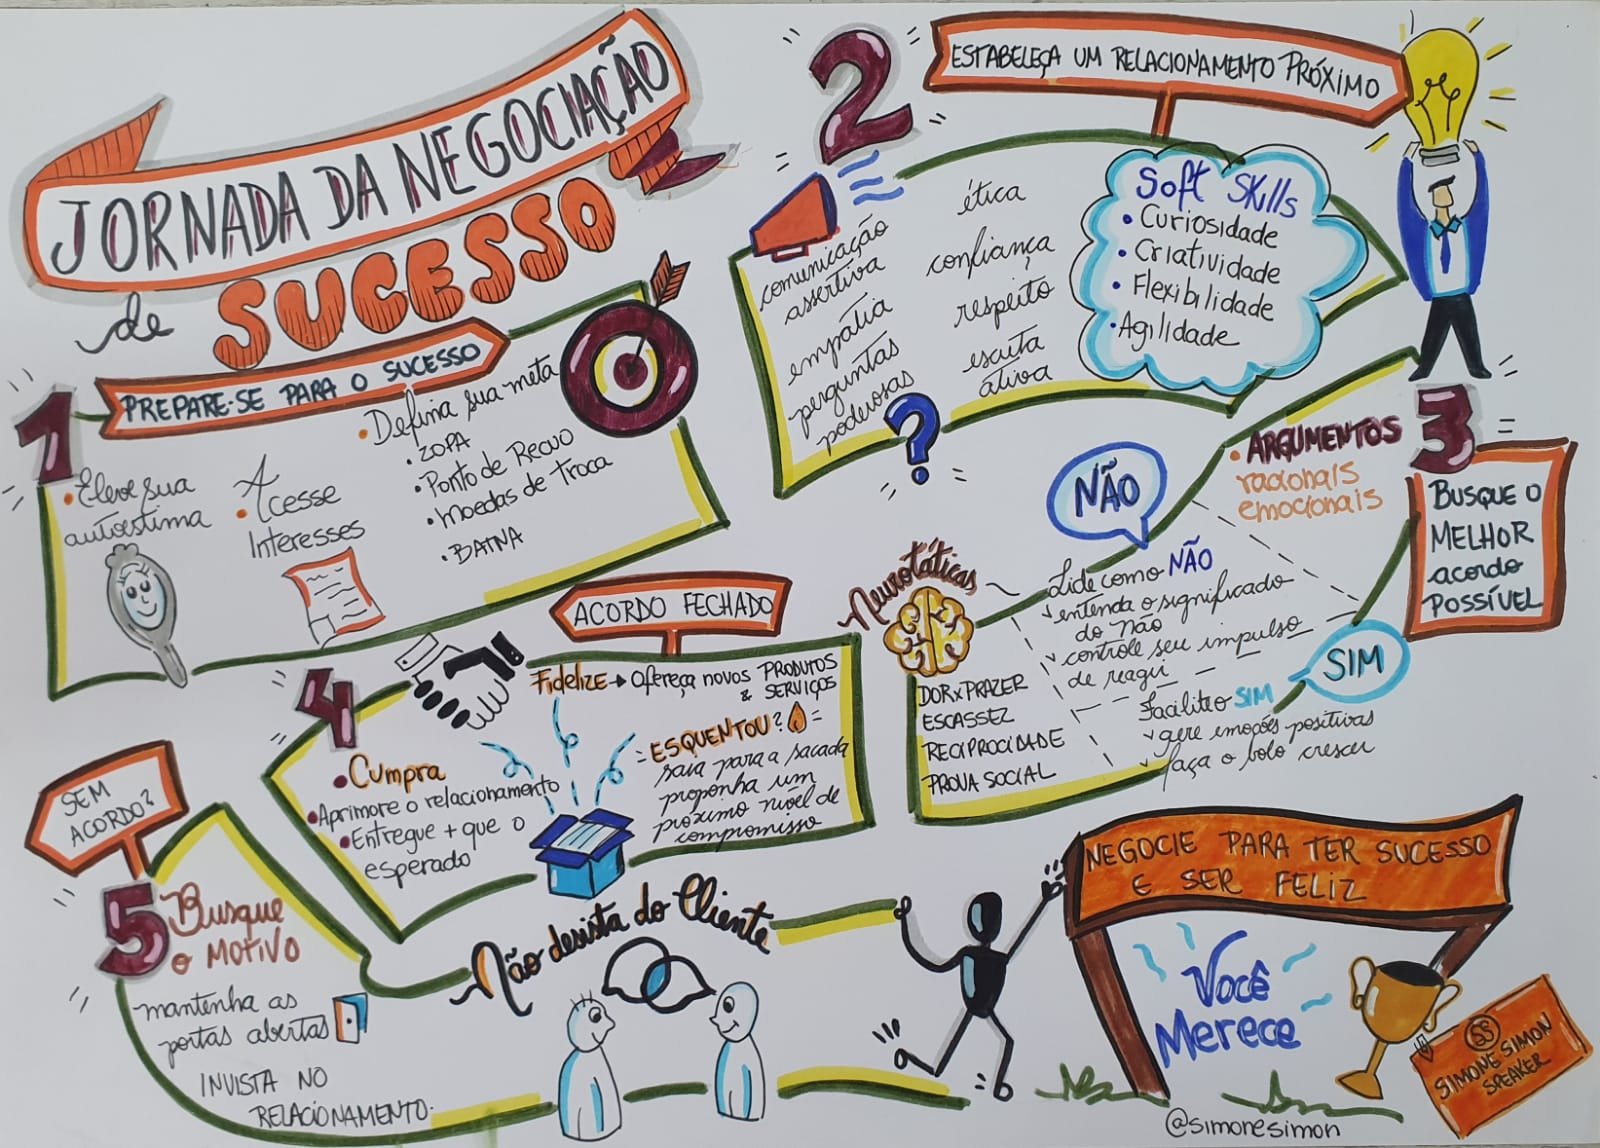 JORNADA DA NEGOCIAÇÃO
de SUCESSO
1
PREPARE-SE PARA O SUCESSO
• Eleve sua
autoestima
• Acesse
Interesses
• Defina sua meta
• ZOPA
• Ponto de Recuo
• Moedas de Troca
• BATNA
2
ESTABELEÇA UM RELACIONAMENTO PRÓXIMO
comunicação
assertiva
empatia
perguntas
poderosas
?
ética
confiança
respeito
escuta
ativa
Soft Skills
• Curiosidade
• Criatividade
• Flexibilidade
• Agilidade
3
BUSQUE O
MELHOR
acordo
POSSÍVEL
• ARGUMENTOS
racionais
emocionais
NÃO
Lide com o NÃO
✓ entenda o significado
do não
✓ controle seu impulso
de reagir
SIM
Facilite o SIM
✓ gere emoções positivas
✓ faça o bolo crescer
Neurotáticas
DOR x PRAZER
ESCASSEZ
RECIPROCIDADE
PROVA SOCIAL
4
ACORDO FECHADO
Fidelize → Ofereça novos PRODUTOS
& SERVIÇOS
• Cumpra
• Aprimore o relacionamento
• Entregue + que o
esperado
ESQUENTOU?
saia para a sacada
proponha um
próximo nível de
compromisso
SEM
ACORDO?
5
Busque
o MOTIVO
mantenha as
portas abertas
INVISTA NO
RELACIONAMENTO.
Não desista do Cliente
NEGOCIE PARA TER SUCESSO
E SER FELIZ
Você
Merece
SS
SIMONE SIMON
SPEAKER
@simonesimon